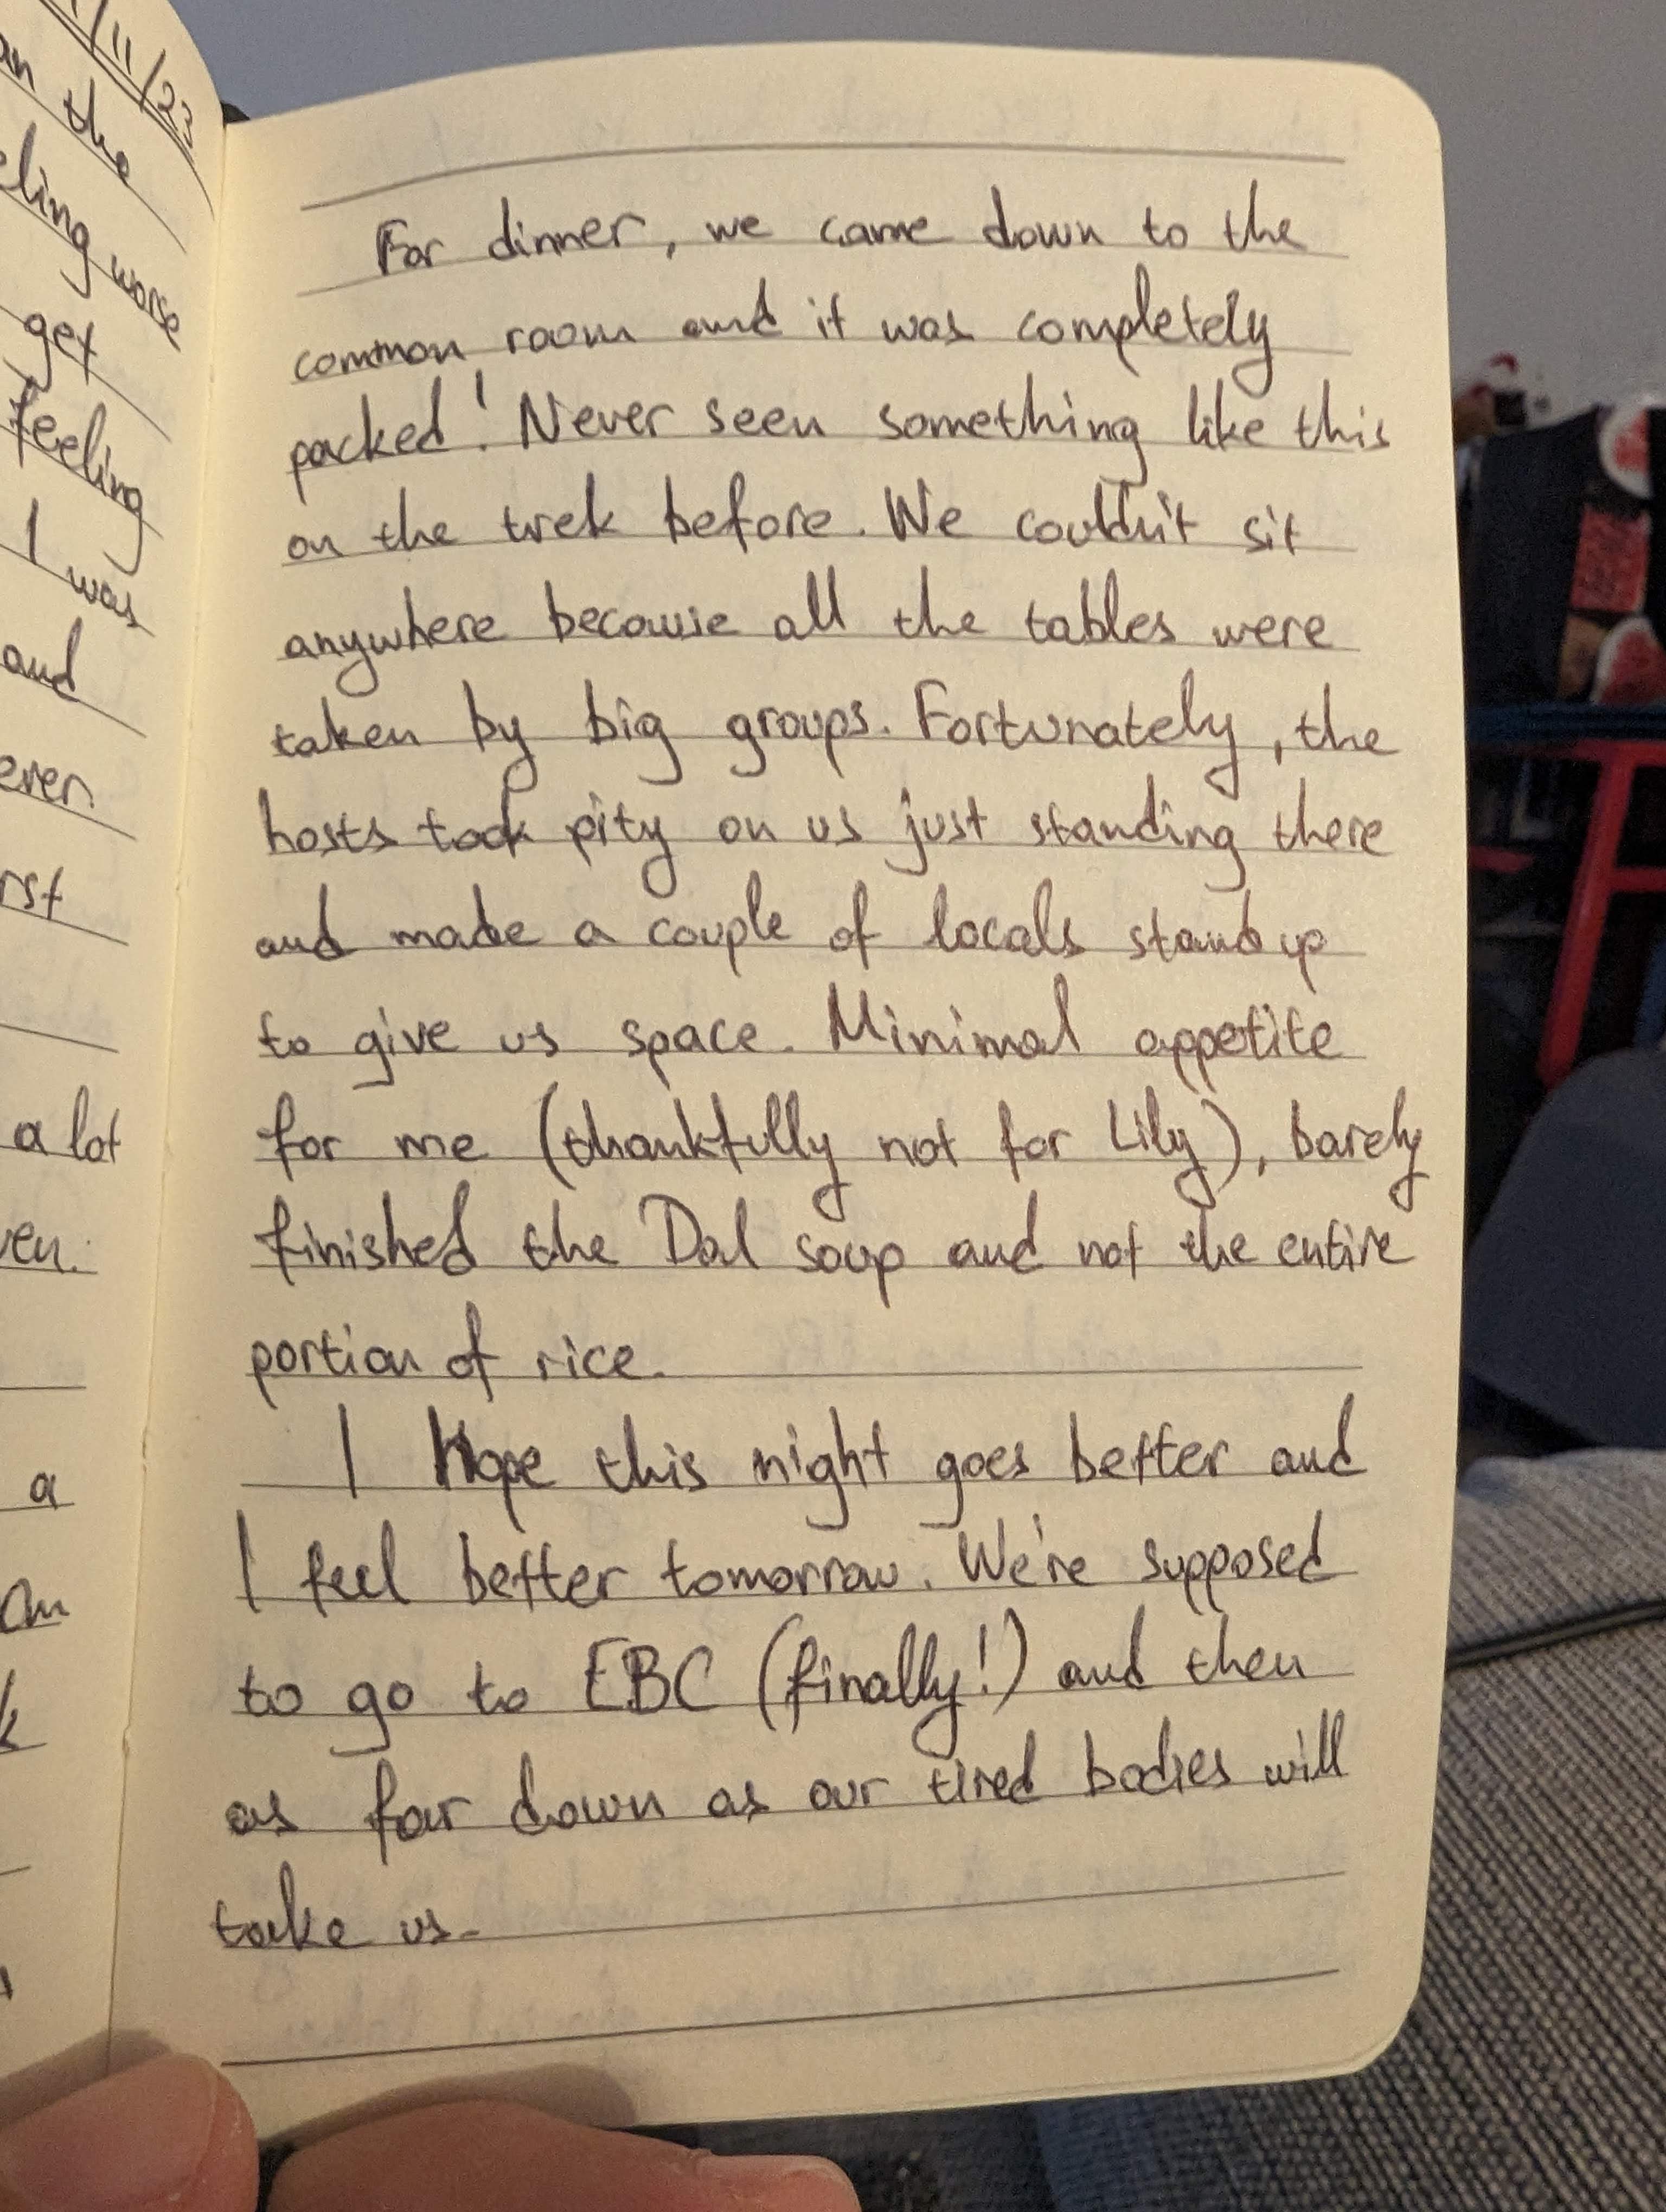 11/23
an the
eling worse
get
feeling
I was
and
ever
rst
a lot
ven.
a
For dinner, we came down to the
common room and it was completely
packed! Never seen something like this
on the trek before. We couldn't sit
anywhere because all the tables were
taken by big groups. Fortunately, the
hosts took pity on us just standing there
and made a couple of locals stand up
to give us space. Minimal appetite
for me (thankfully not for Lily), barely
finished the Dal soup and not the entire
portion of rice.
I Hope this night goes better and
I feel better tomorrow. We're supposed
to go to EBC (finally!) and then
as far down as our tired bodies will
take us.